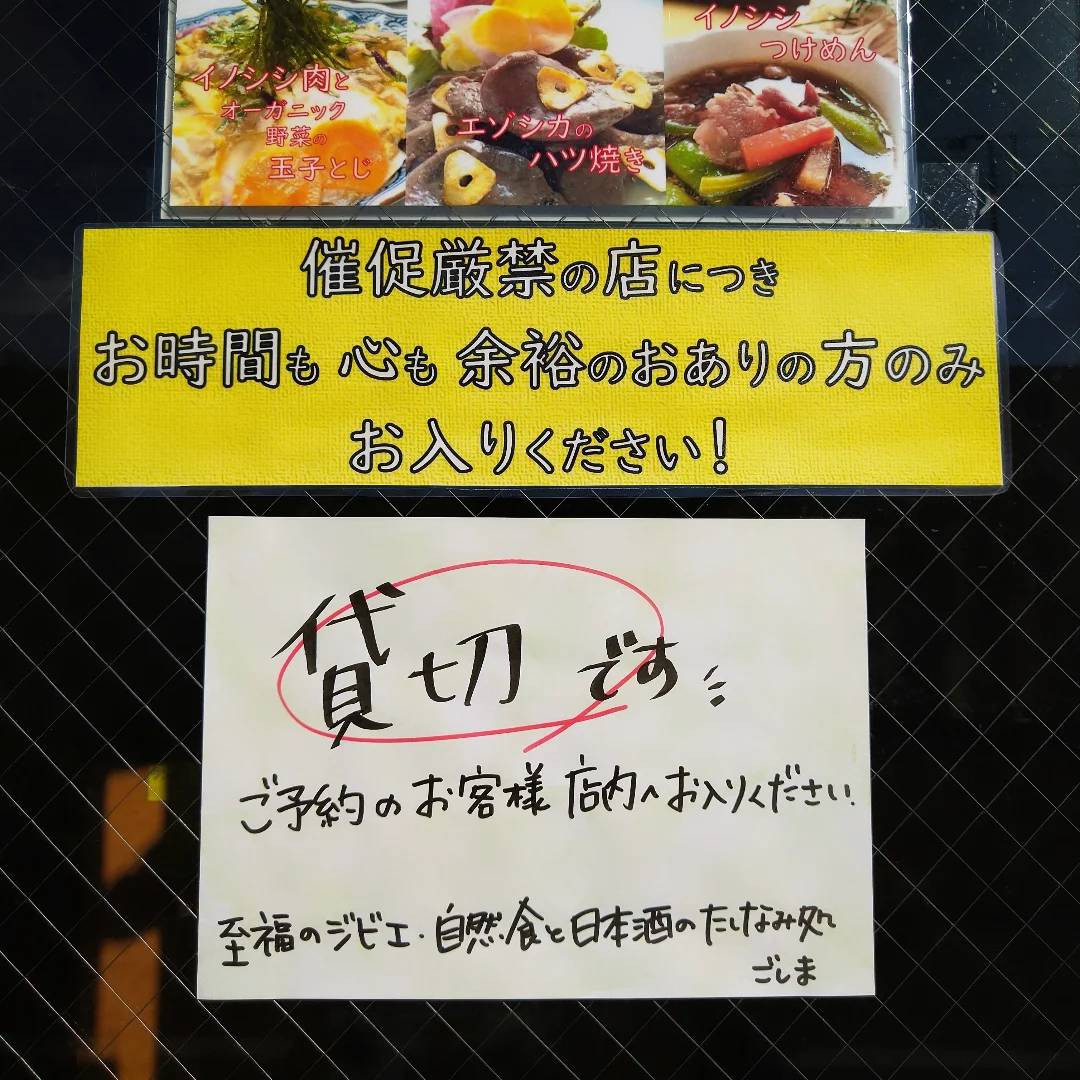 イノシシ肉と
オーガニック
野菜の
玉子とじ
エゾシカの
ハツ焼き
イノシシ
つけめん
催促厳禁の店につき
お時間も 心も 余裕のおありの方のみ
お入りください!
貸切です
ご予約のお客様 店内へお入りください.
至福のジビエ・自然食と日本酒のたしなみ処
ごしま